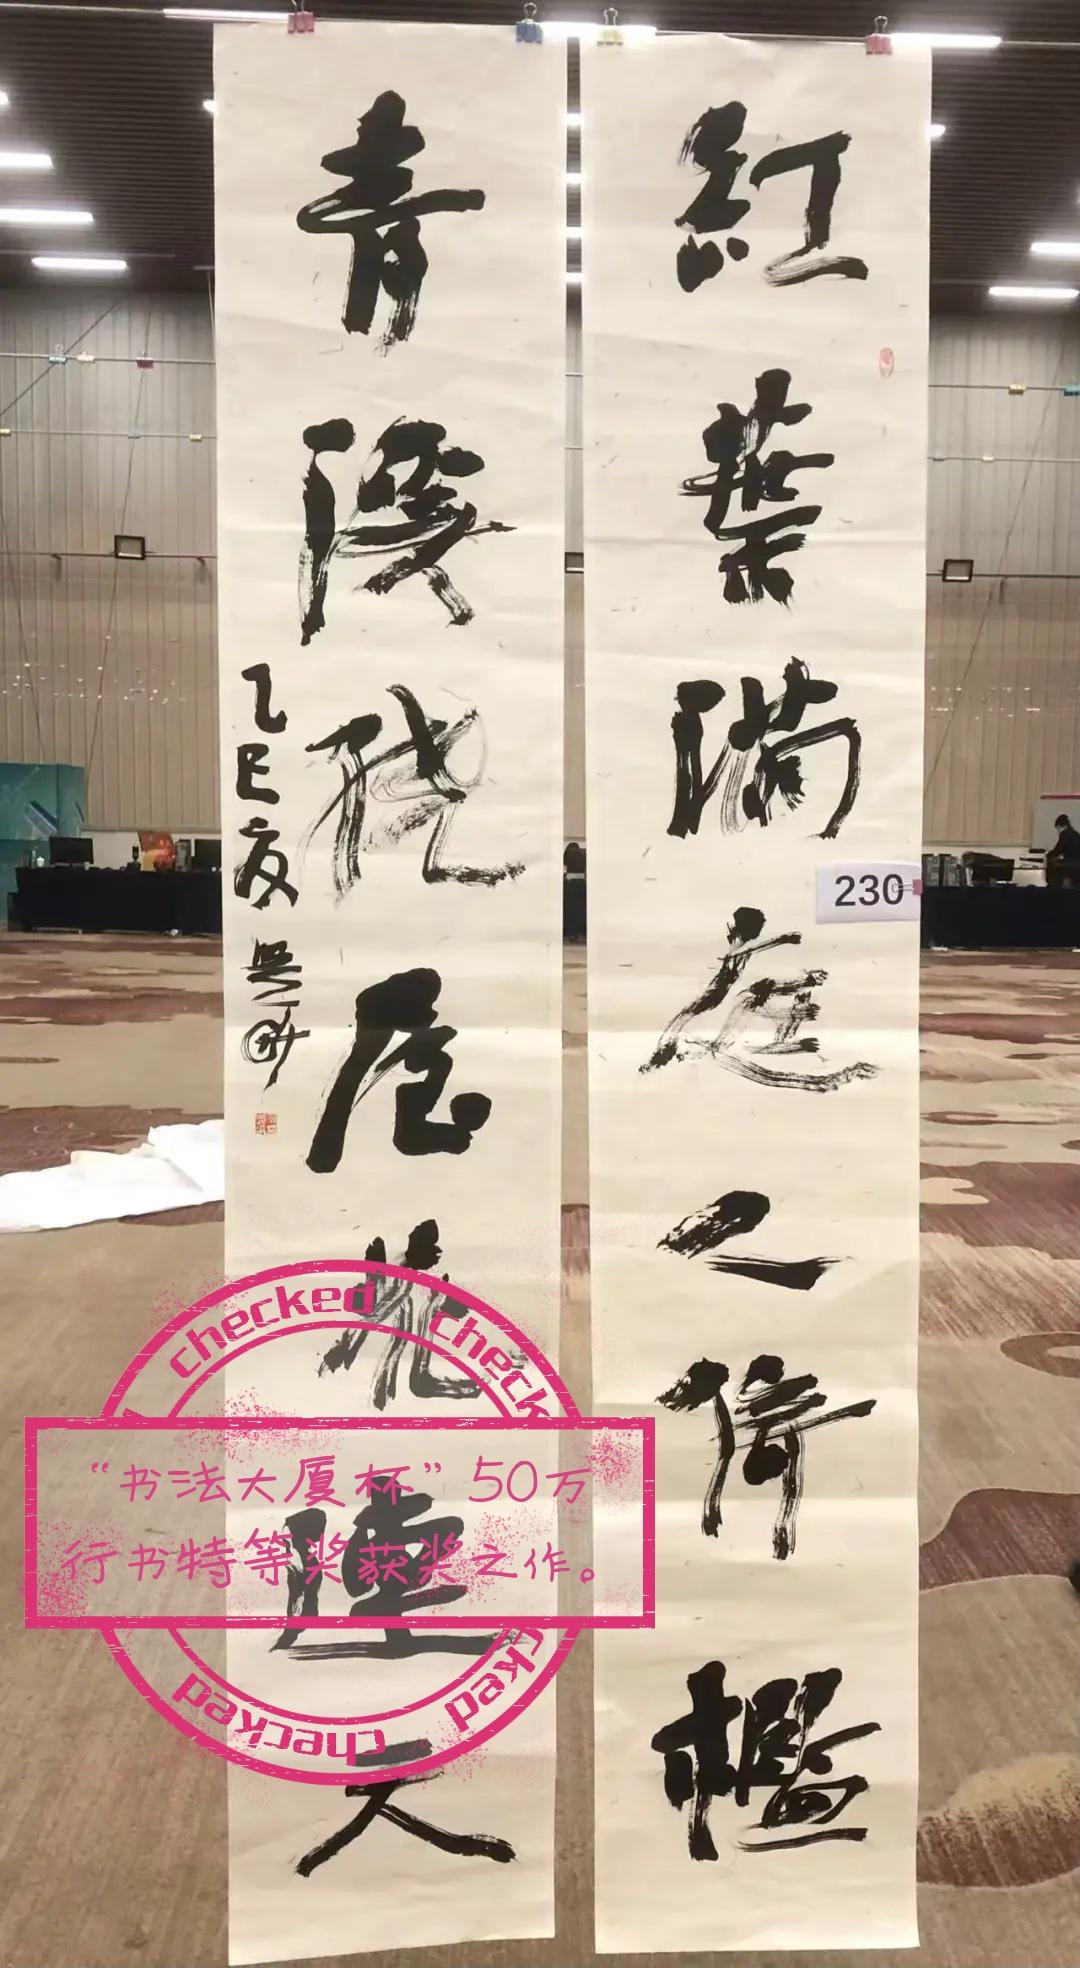 紅葉滿庭人倚檻
青溪繞屋花連天
乙巳夏
230
checked checked
“书法大厦杯”50万
行书特等奖获奖之作。
checked checked checked